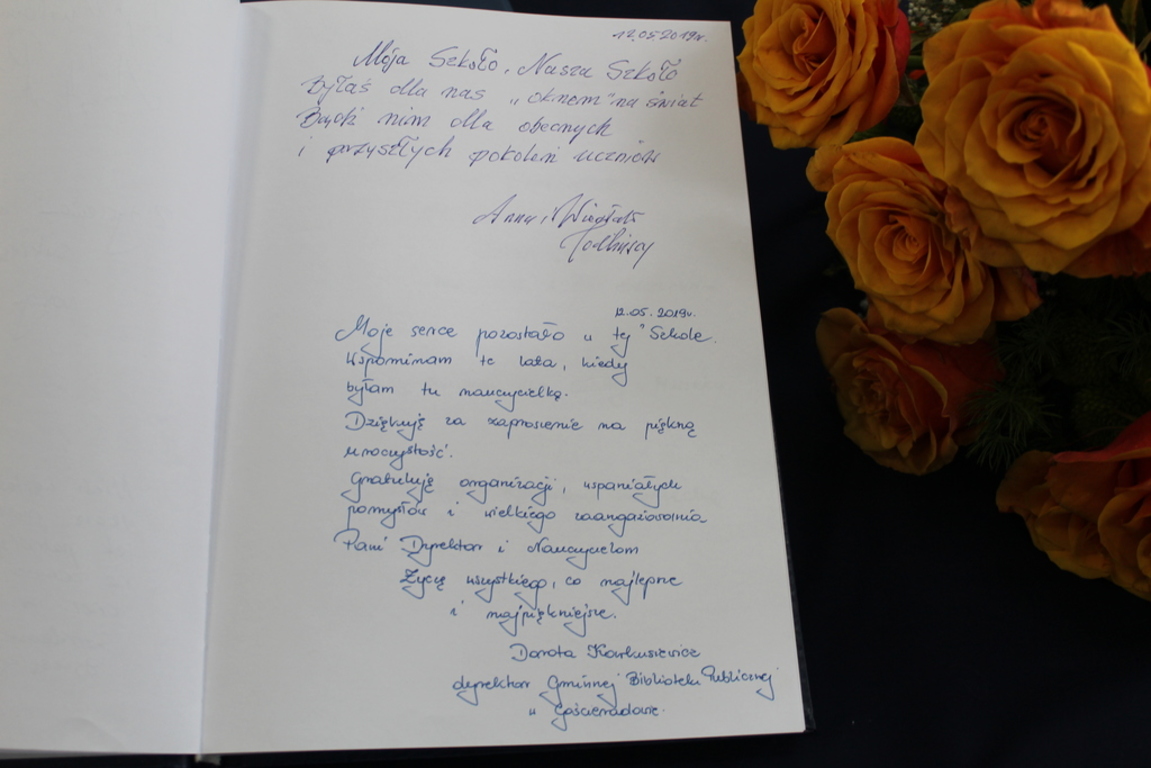 12.05.2019r.
Moja Szkoło, Nasza Szkoło
Byłaś dla nas „oknem” na świat
Bądź nim dla obecnych
i przyszłych pokoleń uczniów
Anna i Wiesław
12.05.2019r.
Moje serce pozostało w tej Szkole.
Wspominam te lata, kiedy
byłam tu nauczycielką.
Dziękuję za zaproszenie na piękną
uroczystość.
Gratuluję organizacji, wspaniałych
pomysłów i wielkiego zaangażowania
Pani Dyrektor i Nauczycielom
Życzę wszystkiego, co najlepsze
i najpiękniejsze.
Dorota
dyrektor Gminnej Biblioteki Publicznej
w Gościeradowie.